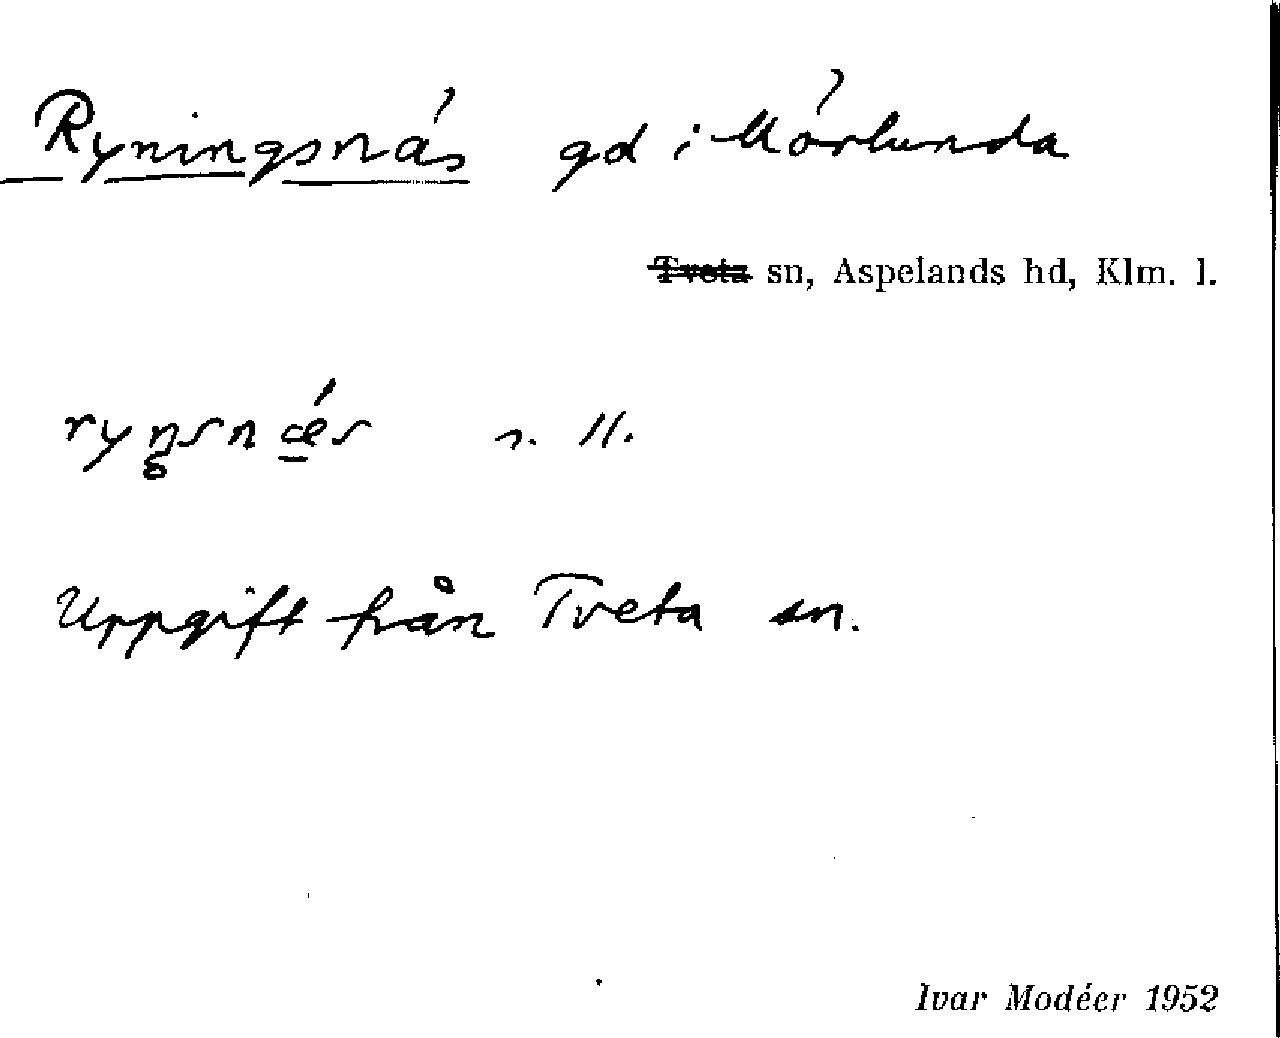 Ryningsnäs gd i Mörlunda
Tveta sn, Aspelands hd, Klm. l.
ryŋsnǽs
Uppgift från Tveta sn.
Ivar Modéer 1952